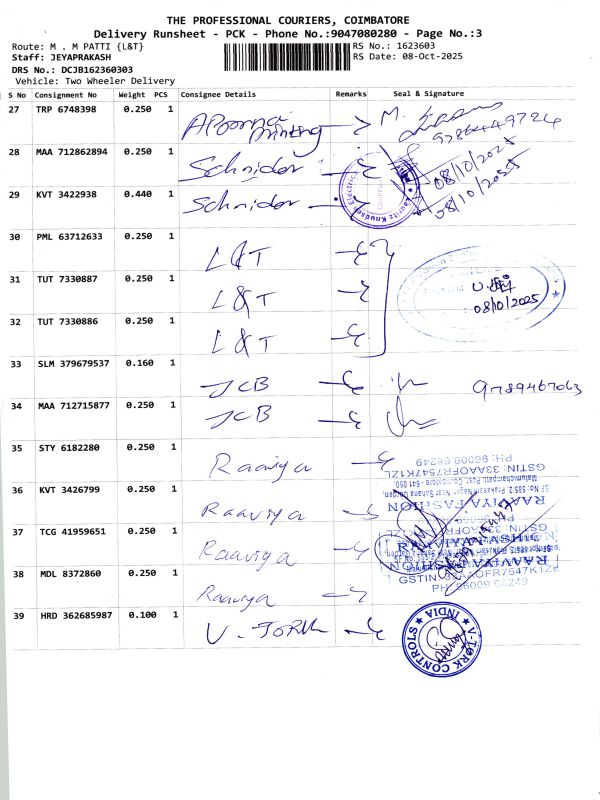 THE PROFESSIONAL COURIERS, COIMBATORE
Delivery Runsheet - PCK - Phone No.:9047080280 - Page No.:3
Route: M . M PATTI {L&T}
RS No.: 1623603
Staff: JEYAPRAKASH
RS Date: 08-Oct-2025
DRS No.: DCJB162360303
Vehicle: Two Wheeler Delivery
S No Consignment No Weight PCS Consignee Details Remarks Seal & Signature
27 TRP 6748398 0.250 1 M.
printing
28 MAA 712862894 0.250 1 Schnider
08/10/2025
29 KVT 3422938 0.440 1 Schnider
08/10/2025
30 PML 63712633 0.250 1 L&T
31 TUT 7330887 0.250 1 L&T
08/10/2025
32 TUT 7330886 0.250 1 L&T
33 SLM 379679537 0.160 1 JCB
34 MAA 712715877 0.250 1 JCB
35 STY 6182280 0.250 1 Raaviya
PH: 96009 68249
GSTIN: 33AAOFR7547K1ZL
RAAVIYA FASHION
36 KVT 3426799 0.250 1 Raaviya
37 TCG 41959651 0.250 1 Raaviya
38 MDL 8372860 0.250 1 Raaviya
39 HRD 362685987 0.100 1 V-TORK
V-TORK CONTROLS
INDIA